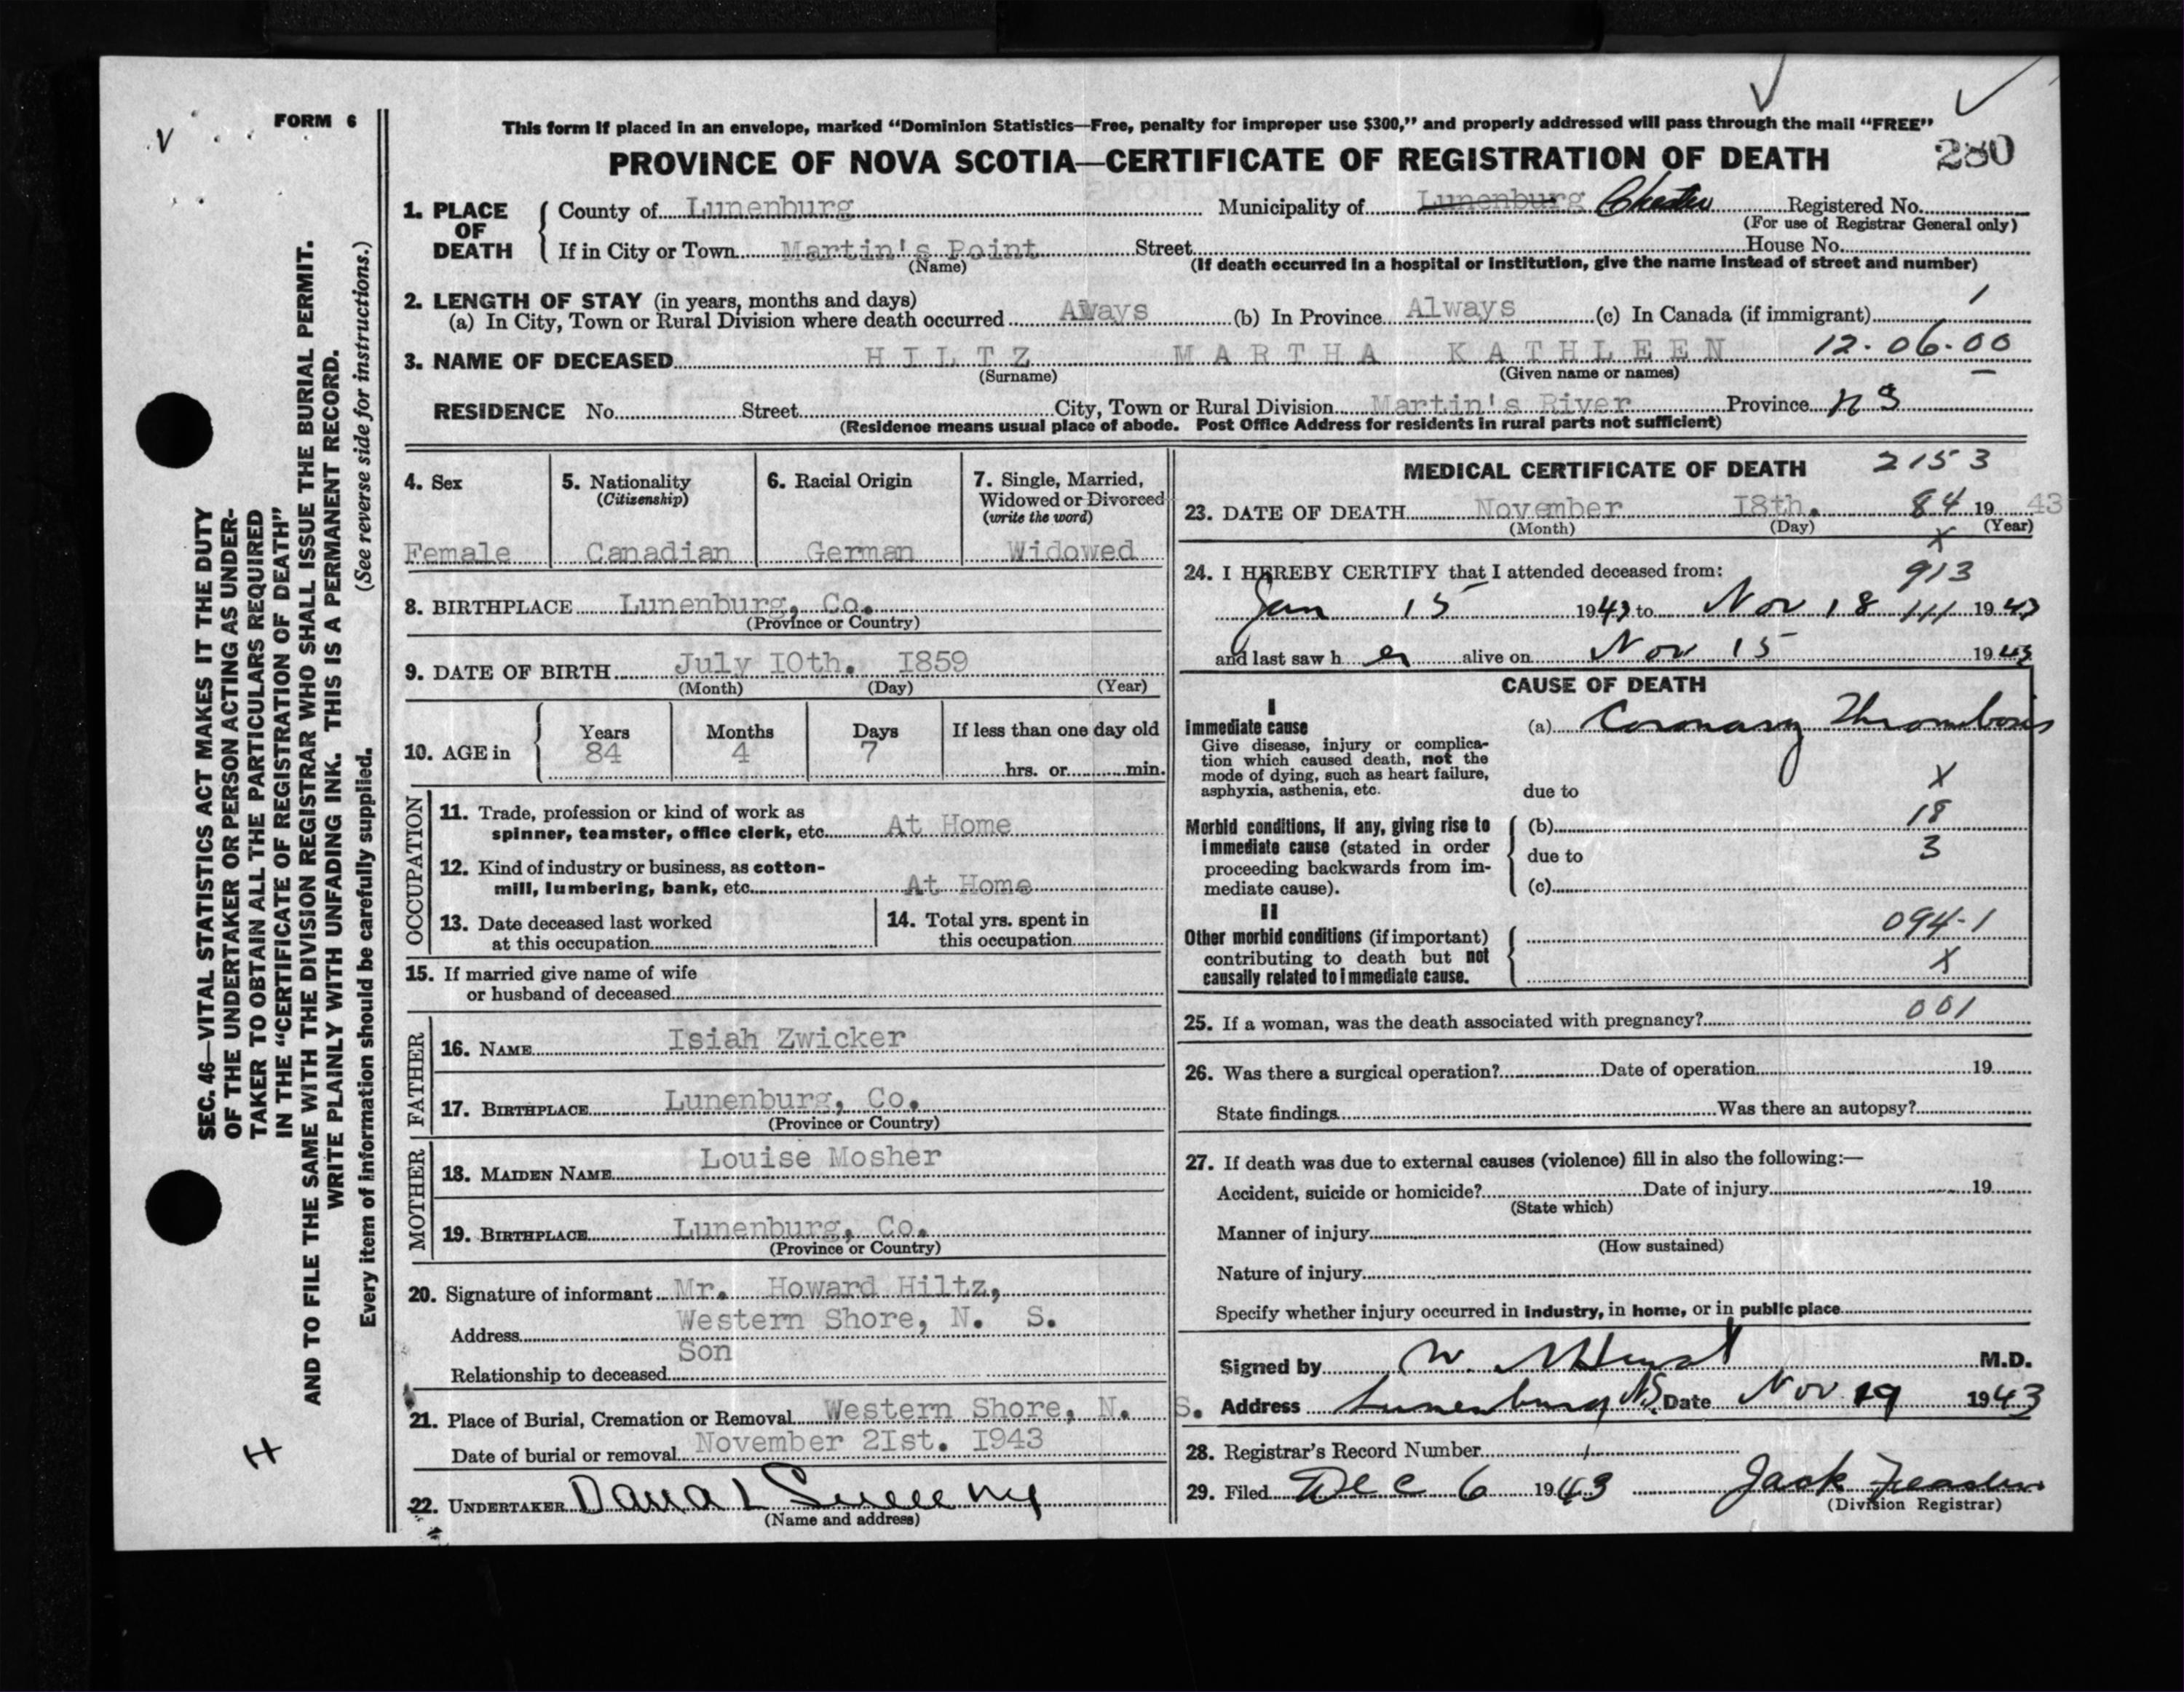 FORM 6
This form if placed in an envelope, marked “Dominion Statistics—Free, penalty for improper use $300,” and properly addressed will pass through the mail “FREE”
PROVINCE OF NOVA SCOTIA—CERTIFICATE OF REGISTRATION OF DEATH
280
SEC. 46—VITAL STATISTICS ACT MAKES IT THE DUTY
OF THE UNDERTAKER OR PERSON ACTING AS UNDER-
TAKER TO OBTAIN ALL THE PARTICULARS REQUIRED
IN THE “CERTIFICATE OF REGISTRATION OF DEATH”
AND TO FILE THE SAME WITH THE DIVISION REGISTRAR WHO SHALL ISSUE THE BURIAL PERMIT.
WRITE PLAINLY WITH UNFADING INK. THIS IS A PERMANENT RECORD.
Every item of information should be carefully supplied. (See reverse side for instructions.)
H
1. PLACE OF DEATH
County of Lunenburg Municipality of Lunenburg Chester Registered No.
(For use of Registrar General only)
If in City or Town Martin's Point Street House No.
(Name) (If death occurred in a hospital or institution, give the name instead of street and number)
2. LENGTH OF STAY (in years, months and days)
(a) In City, Town or Rural Division where death occurred Aways (b) In Province Always (c) In Canada (if immigrant) 1
3. NAME OF DECEASED HILTZ MARTHA KATHLEEN 12-06-00
(Surname) (Given name or names)
RESIDENCE No. Street City, Town or Rural Division Martin's River Province N S
(Residence means usual place of abode. Post Office Address for residents in rural parts not sufficient)
4. Sex
Female
5. Nationality
(Citizenship)
Canadian
6. Racial Origin
German
7. Single, Married,
Widowed or Divorced
(write the word)
Widowed
8. BIRTHPLACE Lunenburg, Co.
(Province or Country)
9. DATE OF BIRTH July IOth. I859
(Month) (Day) (Year)
10. AGE in
Years Months Days If less than one day old
84 4 7
hrs. or min.
OCCUPATION
11. Trade, profession or kind of work as
spinner, teamster, office clerk, etc. At Home
12. Kind of industry or business, as cotton-
mill, lumbering, bank, etc. At Home
13. Date deceased last worked
at this occupation
14. Total yrs. spent in
this occupation
15. If married give name of wife
or husband of deceased
FATHER
16. NAME Isiah Zwicker
17. BIRTHPLACE Lunenburg, Co.
(Province or Country)
MOTHER
18. MAIDEN NAME Louise Mosher
19. BIRTHPLACE Lunenburg, Co.
(Province or Country)
20. Signature of informant Mr. Howard Hiltz,
Address Western Shore, N. S.
Relationship to deceased Son
21. Place of Burial, Cremation or Removal Western Shore, N. S.
Date of burial or removal November 2Ist. I943
22. UNDERTAKER
(Name and address)
MEDICAL CERTIFICATE OF DEATH 2153
23. DATE OF DEATH November I8th. 84 19 43
(Month) (Day) (Year)
X
24. I HEREBY CERTIFY that I attended deceased from: 913
Jan 15 1943 to Nov 18 1943
and last saw h er alive on Nov 15 1943
CAUSE OF DEATH
I
Immediate cause
Give disease, injury or complica-
tion which caused death, not the
mode of dying, such as heart failure,
asphyxia, asthenia, etc.
(a) Coronary Thrombosis
X
due to
Morbid conditions, if any, giving rise to
immediate cause (stated in order
proceeding backwards from im-
mediate cause).
(b) 18
due to 3
(c)
II
Other morbid conditions (if important)
contributing to death but not
causally related to immediate cause.
094-1
X
25. If a woman, was the death associated with pregnancy? 001
26. Was there a surgical operation? Date of operation 19
State findings Was there an autopsy?
27. If death was due to external causes (violence) fill in also the following:—
Accident, suicide or homicide? Date of injury 19
(State which)
Manner of injury
(How sustained)
Nature of injury
Specify whether injury occurred in industry, in home, or in public place
Signed by W. M.D.
Address Lunenburg N.S. Date Nov 19 1943
28. Registrar's Record Number
29. Filed Dec 6 1943 Jack
(Division Registrar)